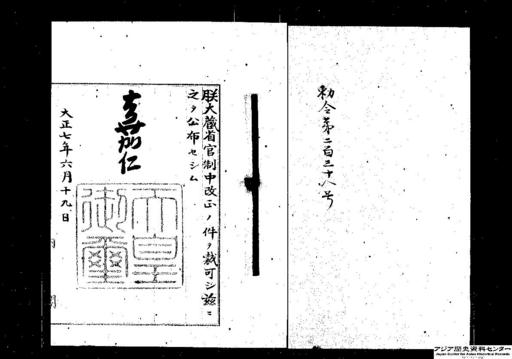 勅令第二百三十八号
朕大蔵省官制中改正ノ件ヲ裁可シ茲ニ
之ヲ公布セシム
嘉仁
天皇御璽
大正七年六月十九日
アジア歴史資料センター
Japan Center for Asian Historical Records